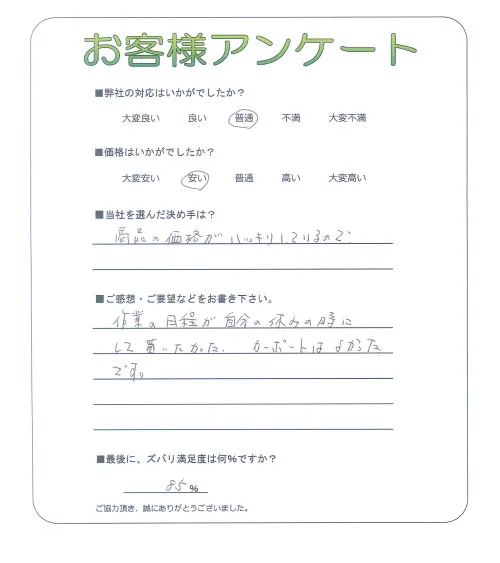 お客様アンケート
■弊社の対応はいかがでしたか？
大変良い 良い 普通 不満 大変不満
■価格はいかがでしたか？
大変安い 安い 普通 高い 大変高い
■当社を選んだ決め手は？
商品の価格がハッキリしているので
■ご感想・ご要望などをお書き下さい。
作業の日程が自分の休みの時に
して貰いたかった。 カーポートはよかった
です。
■最後に、ズバリ満足度は何％ですか？
85％
ご協力頂き、誠にありがとうございました。